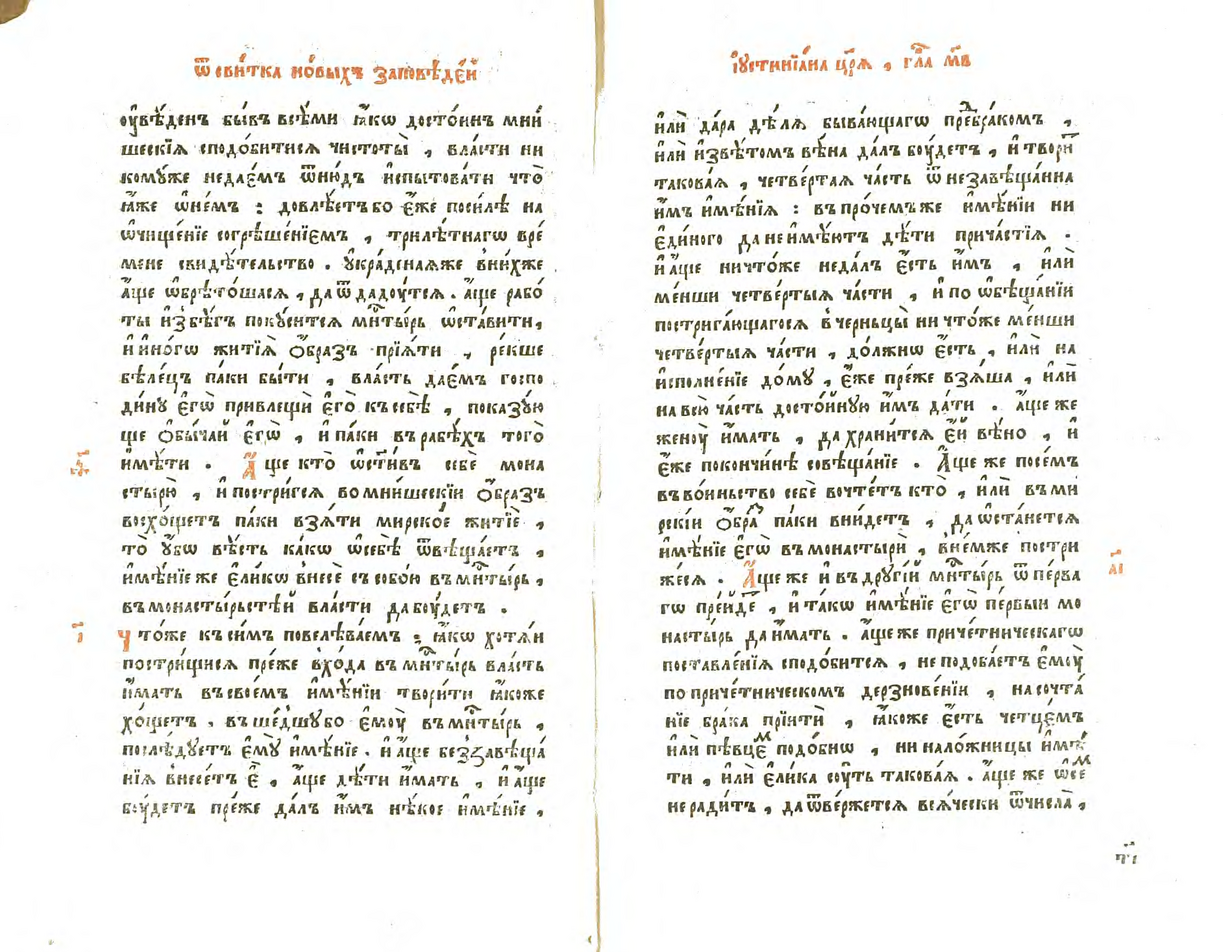 ѿ сви́тка но́выхъ за́повѣдей
оу҆вѣ́денъ бы́въ всѣ́ми ꙗ҆́кѡ досто́инъ мни́
шескїѧ сподо́битисѧ чистоты̀ , вла́сти ни
кому́же недае́мъ ѿню́дъ и҆спытова́ти что̀
ꙗ҆́же ѡ҆не́мъ : довлѣ́етъбо є҆́же поси́лѣ на
ѡ҆чище́нїе согрѣше́нїемъ , трилѣ́тнагѡ вре́
мене свидѣ́тельство . ᲂу҆кра́денаѧже вни́хже
а҆́ще ѡ҆брѣто́шасѧ , да ѿдаду́тсѧ . а҆́ще рабо́
ты и҆збѣ́гъ поку́ситсѧ мн҃ты́рь ѡ҆ста́вити,
и҆ и҆но́гѡ житїѧ̀ ѻ҆́бразъ прїѧ́ти , ре́кше
бѣле́цъ па́ки бы́ти , вла́сть дае́мъ госпо
ди́ну є҆гѡ̀ привлещѝ є҆го̀ ксебѣ̀ , показу́ю
ще ѻ҆бы́чаи є҆гѡ̀ , и҆ па́ки врабѣ́хъ того̀
и҆мѣ́ти . А҆́ще кто̀ ѡ҆ст҃и́въ себѐ мона
стырю̀ , и҆ постри́гсѧ вомни́шескїи ѻ҆́бразъ
восхо́щетъ па́ки взѧ́ти мирско́е житїѐ ,
то̀ ᲂу҆́бѡ вѣ́сть ка́кѡ ѡ҆себѣ̀ ѿвѣща́етъ ,
и҆мѣ́нїеже є҆ли́кѡ внесѐ съ собо́ю въ мн҃ты́рь ,
въ монасты́рьстѣй вла́сти да бу́детъ .
і҃
Что́же ксимъ повелѣва́емъ : ꙗ҆́кѡ хотѧ́и
пострищи́сѧ пре́же вхо́да въ мн҃ты́рь вла́сть
и҆́мать въ свое́мъ и҆мѣ́нїи твори́ти ꙗ҆́коже
хо́щетъ . въше́дшубо є҆моу̀ въ мн҃ты́рь ,
послѣ́дуетъ є҆му̀ и҆мѣ́нїе . и҆ а҆́ще беззавѣща́
нїѧ внесе́тъ є҆̀ , а҆́ще дѣ́ти и҆́мать , и҆ а҆́ще
бу́детъ пре́же да́лъ и҆̀мъ нѣ́кое и҆мѣ́нїе ,
і҆устинїа́на цр҃ѧ̀ , гла̀ м҃в
и҆лѝ да́ра дѣ́лѧ быва́ющагѡ предбра́комъ ,
и҆лѝ и҆звѣ́томъ вѣ́на да́лъ бу́детъ , и҆ твори́т
такова́ѧ , четве́ртаѧ ча́сть ѿ незавѣща́нна
и҆̀мъ и҆мѣ́нїѧ : въ про́чемъже и҆мѣ́нїи ни
є҆ди́ного да неи҆мѣ́ютъ дѣ́ти прича́стїѧ .
и҆ а҆́ще ничто́же неда́лъ є҆́сть и҆̀мъ , и҆лѝ
ме́нши четве́ртыѧ ча́сти , и҆ по ѡ҆бѣща́нїи
постриѓа́ющагосѧ в черньцы̀ ничто́же ме́нши
четве́ртыѧ ча́сти , до́лжнѡ є҆́сть , и҆лѝ на
и҆сполне́нїе до́му , є҆́же пре́же взѧ́ша , и҆лѝ
на всю̀ ча́сть досто́йную и҆̀мъ да́ти . а҆́ще же
женоу̀ и҆́мать , да храни́тсѧ є҆́й вѣ́но , и҆
є҆́же покончи́нѣ совѣща́нїе . А҆́ще же посе́мъ
въ во́иньство себѐ вочте́тъ кто̀ , и҆лѝ въ ми
рскі́и ѻ҆́браз па́ки вни́детъ , да ѡ҆ста́нетсѧ
и҆мѣ́нїе є҆гѡ̀ въ монастырѝ , вне́мже постри
же́сѧ . А҆́ще же и҆ въ дрꙋгі́й мн҃ты́рь ѿ пе́рва
а҃і
гѡ пре́йде , и҆ та́кѡ и҆мѣ́нїе є҆гѡ̀ пе́рвыи мо
насты́рь да и҆́мать . а҆́ще же приче́тническагѡ
поставле́нїѧ сподо́битсѧ , не подоба́етъ є҆моу̀
по приче́тническомъ дерзнове́нїи , на сочта́
нїе бра́ка прїитѝ , ꙗ҆́коже є҆́сть четце́мъ
и҆лѝ пѣвце́м подо́бнѡ , ни нало́жницы и҆мѣ́
ти , и҆лѝ є҆ли́ка су́ть такова́ѧ . а҆́ще же ѡ҆ се́м
не ради́тъ , да ѿве́ржетсѧ всѧ́чески ѿ числа̀ ,